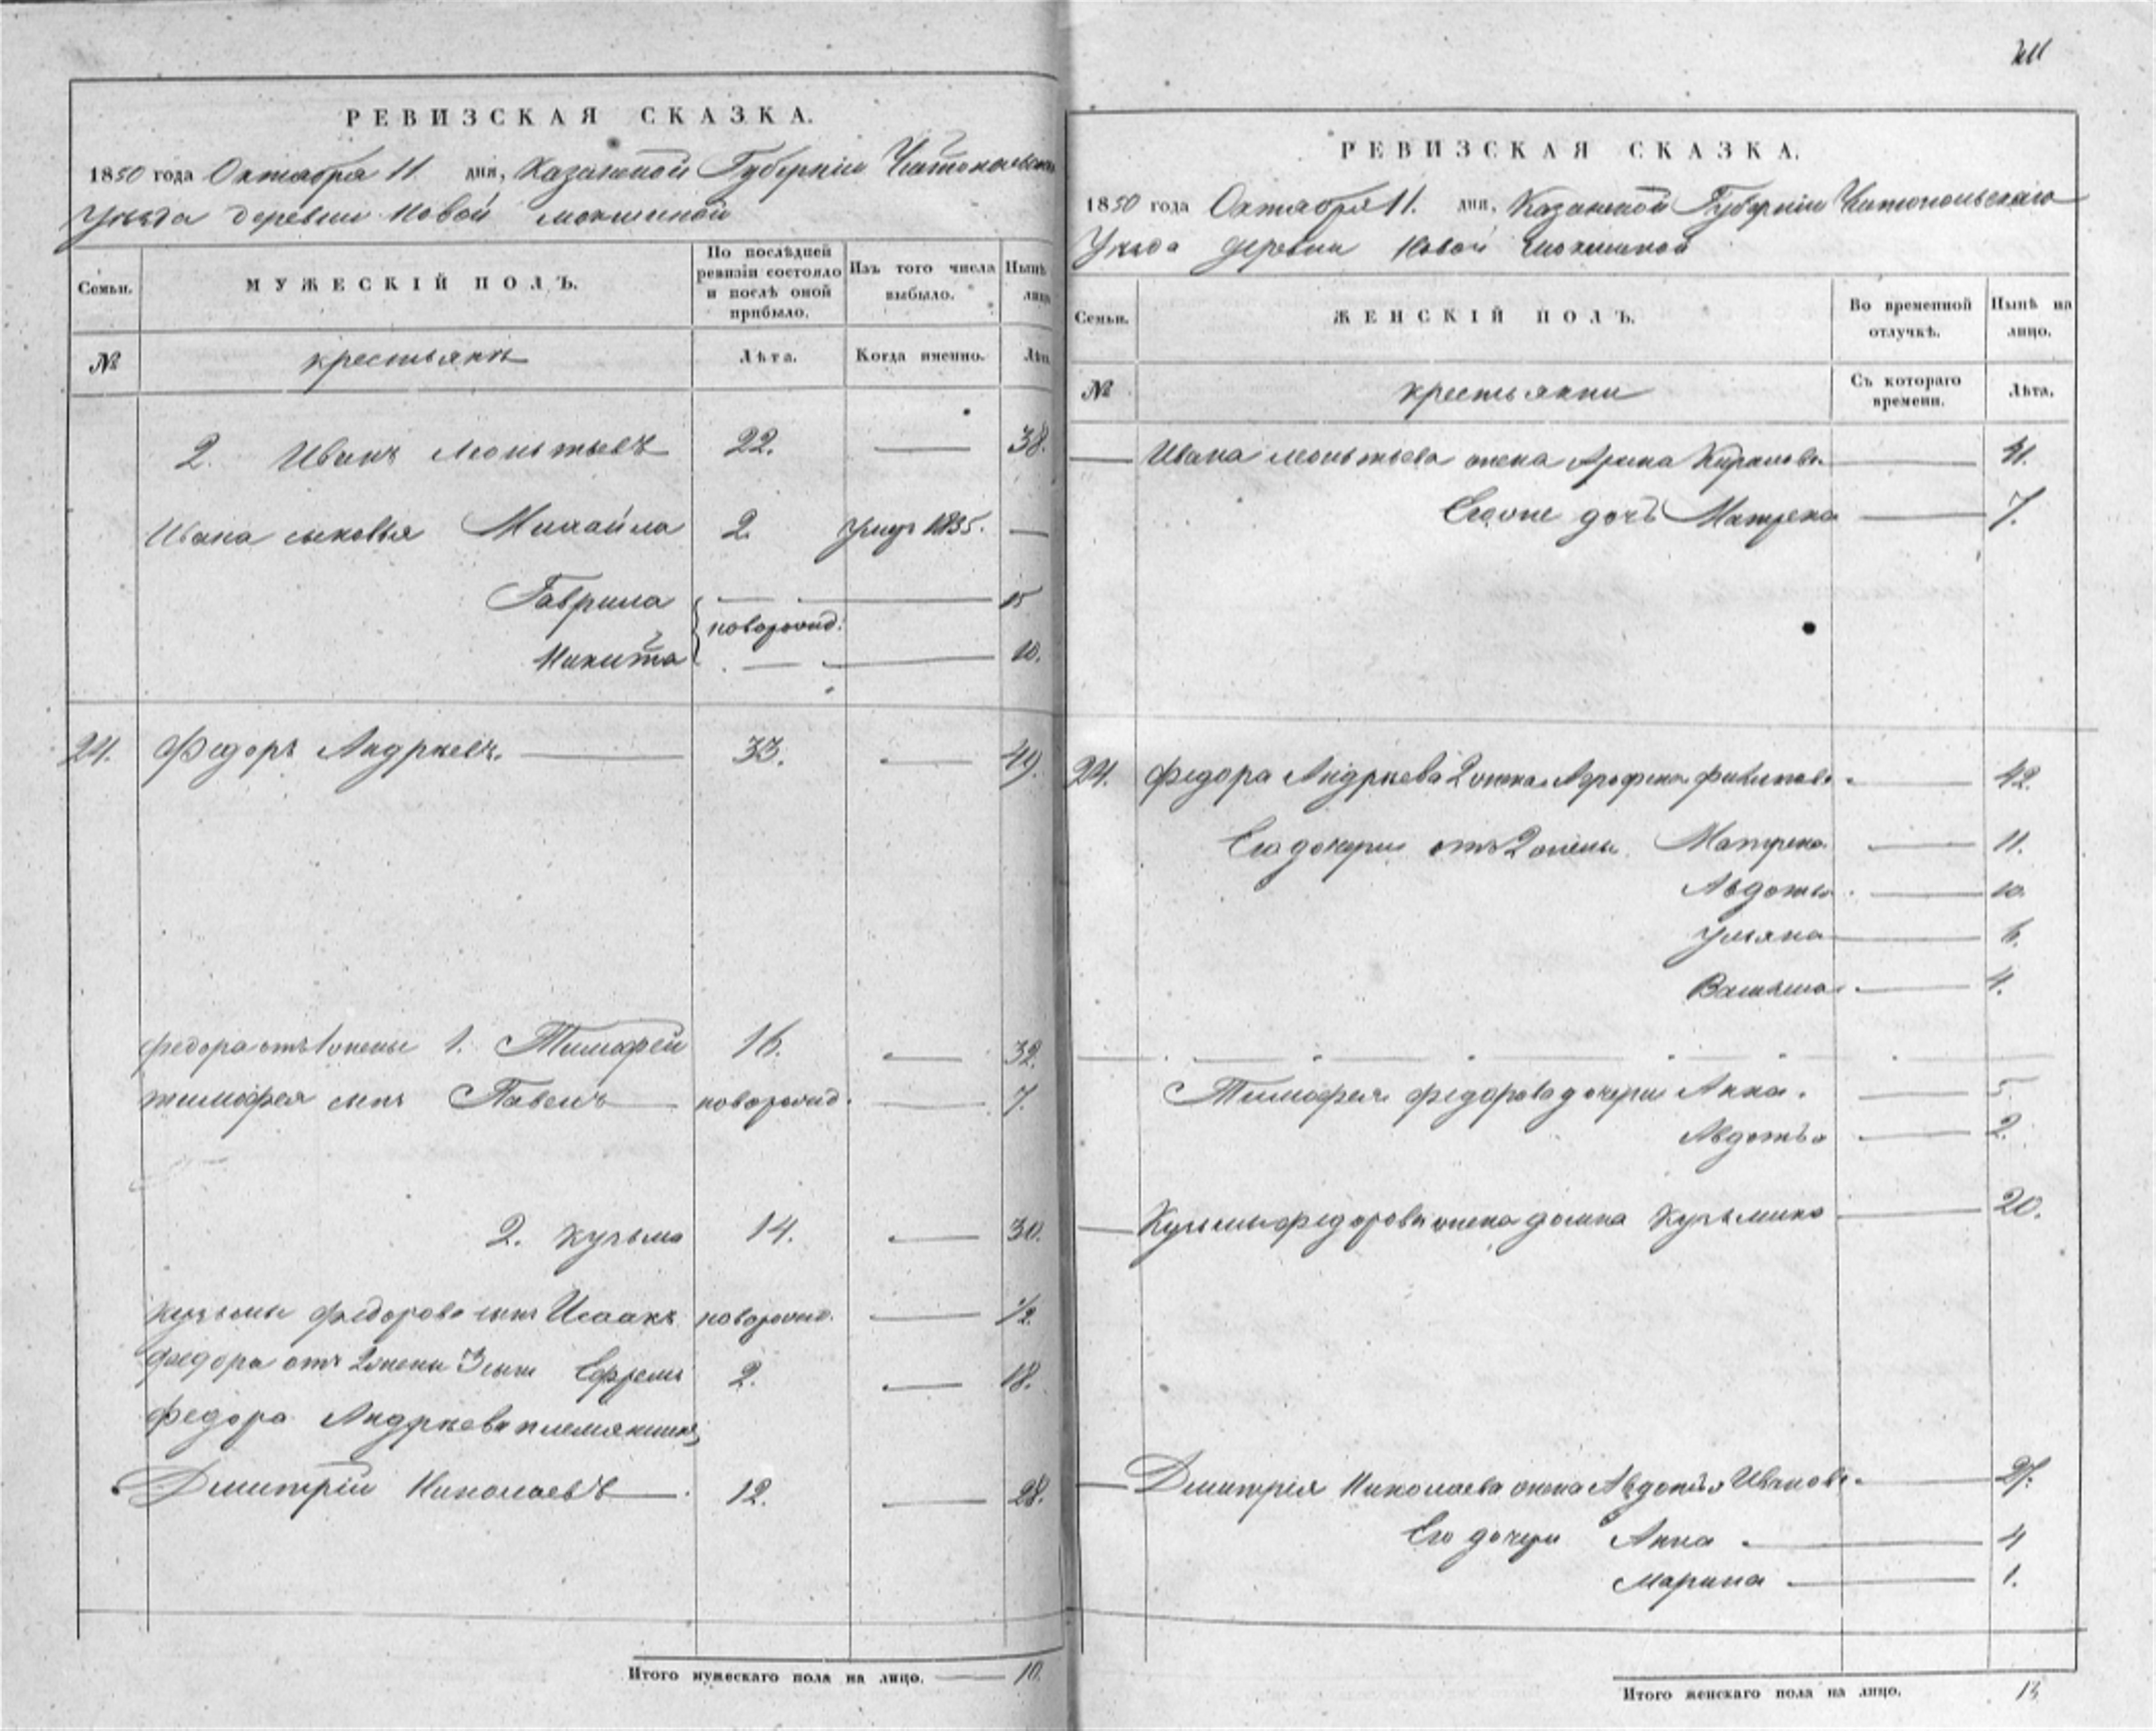 РЕВИЗСКАЯ СКАЗКА.
1850 года Октября 11 дня, Казанской Губерніи
Уѣзда деревни Новой Мокшиной
Семьи.
МУЖЕСКІЙ ПОЛЪ.
По послѣдней ревизіи состояло и послѣ оной прибыло.
Изъ того числа выбыло.
Нынѣ лицо
№
крестьянъ
Лѣта.
Когда именно.
Лѣт
2. Иванъ Леонтьевъ 22. — 38.
Ивана сыновья Михайла 2. умер 1835. —
Гаврила — — 15
новорожд.
Никита — — 10.
24. Федоръ Андреевъ. — 33. — 49.
Федора отъ 1 жены 1. Тимофей 16. — 32.
Тимофея сынъ Павелъ — новорожд. — 7.
2. Кузьма 14. — 30.
Кузьмы Федорова сынъ Исаакъ новорожд. — 1/2
Федора отъ 2 жены 3 сынъ Ефремъ 2. — 18.
Федора Андреева племянникъ
Дмитрій Николаевъ — 12. — 28.
Итого мужескаго пола на лицо. — 10.
РЕВИЗСКАЯ СКАЗКА.
1850 года Октября 11. дня, Казанской Губерніи Чистопольскаго
Уѣзда деревни Новой Мокшиной
Семьи.
ЖЕНСКІЙ ПОЛЪ.
Во временной отлучкѣ.
Нынѣ на лицо.
№
крестьянки
Съ котораго времени.
Лѣта.
— Ивана Леонтьева жена Арина — 41.
Ево же дочь Матрена — 7.
24. Федора Андреева 2 жена — 42.
Его дочери отъ 2 жены Матрена — 11.
Авдотья — 10.
Ульяна — 6.
— 4.
Тимофея Федорова дочери Анна. — 5
Авдотья — 2.
— Кузьмы Федорова жена Домна Кузьмина — 20.
— Дмитрія Николаева жена Авдотья Иванова — 27.
Его дочери Анна — 4
Марина — 1.
Итого женскаго пола на лицо. 13